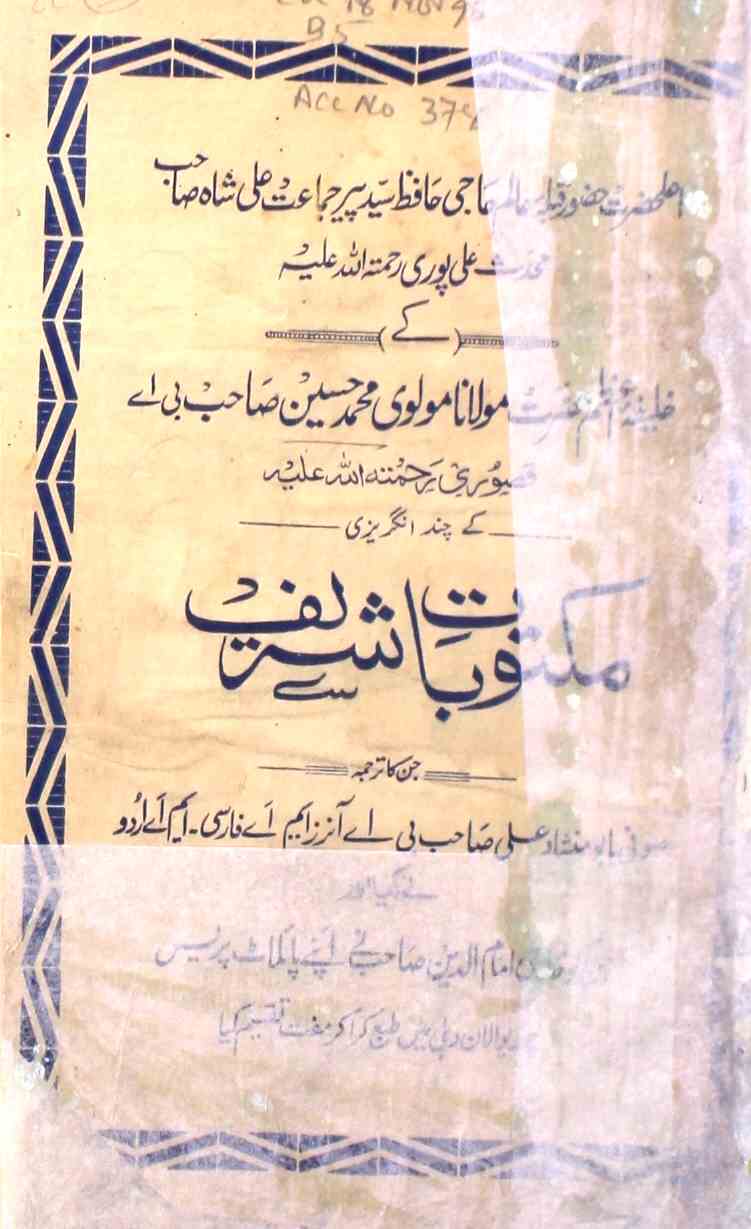 Acc No 37
اعلیٰحضرت حضور قبلہ عالم حاجی حافظ سیّد پیر جماعت علی شاہ صاحب
محدث علی پوری رحمتہ اللہ علیہ
(کے)
خلیفۂ اعظم حضرت مولانا مولوی محمد حسین صاحب بی اے
قصوری رحمتہ اللہ علیہ
کے چند انگریزی
مکتوبات شریف
سے
جن کا ترجمہ
صوفی بابو منشاد علی صاحب بی اے آنرز ایم اے فارسی۔ ایم اے اُردو
نے کیا اور
امام الدین صاحب نے اپنے پائلٹ پریس
دہلی میں طبع کراکر مفت تقسیم کیا